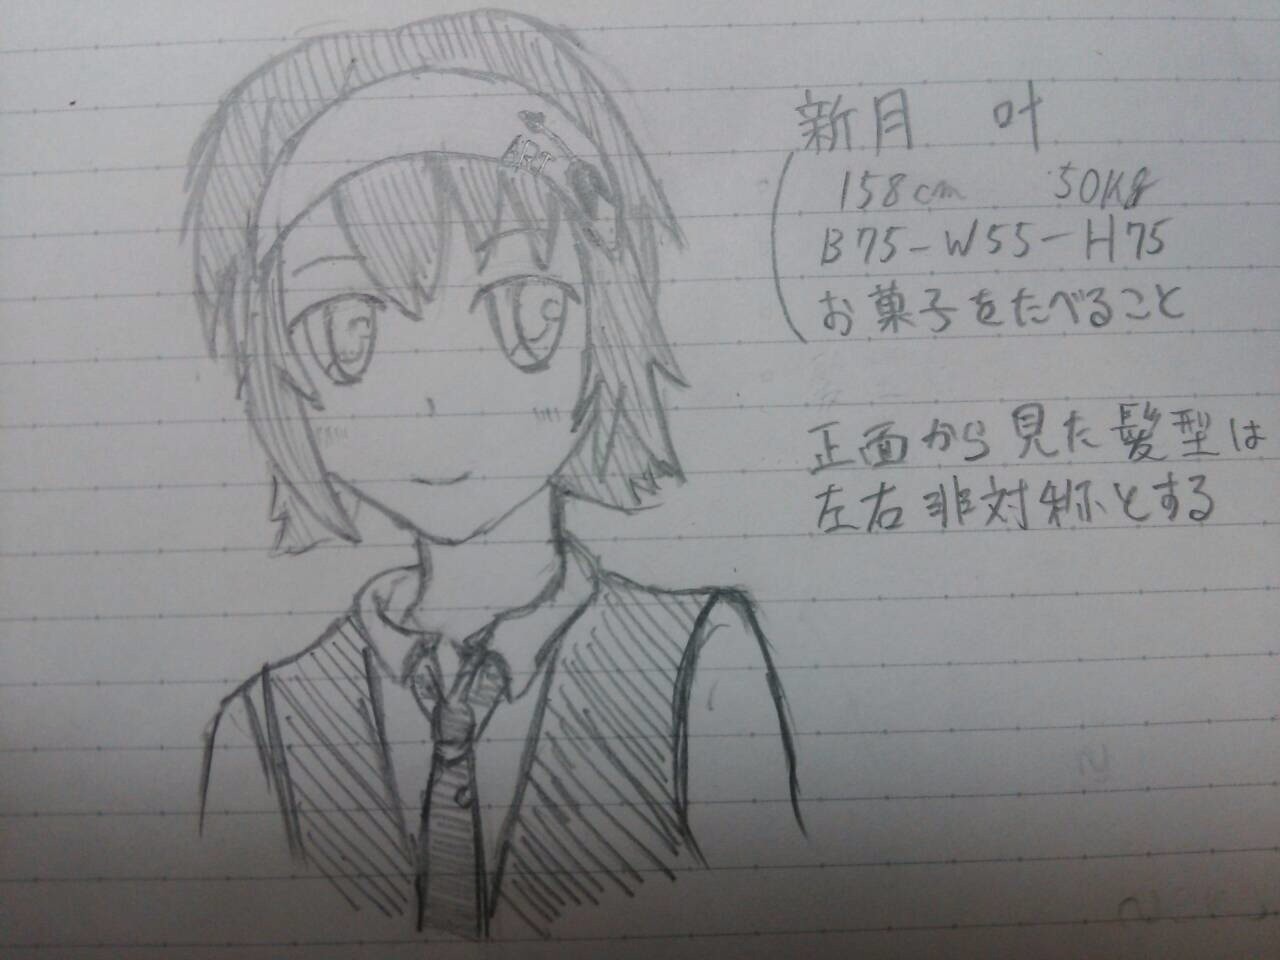 ART
新月 叶
158cm 50kg
B75-W55-H75
お菓子をたべること
正面から見た髪型は
左右非対称とする